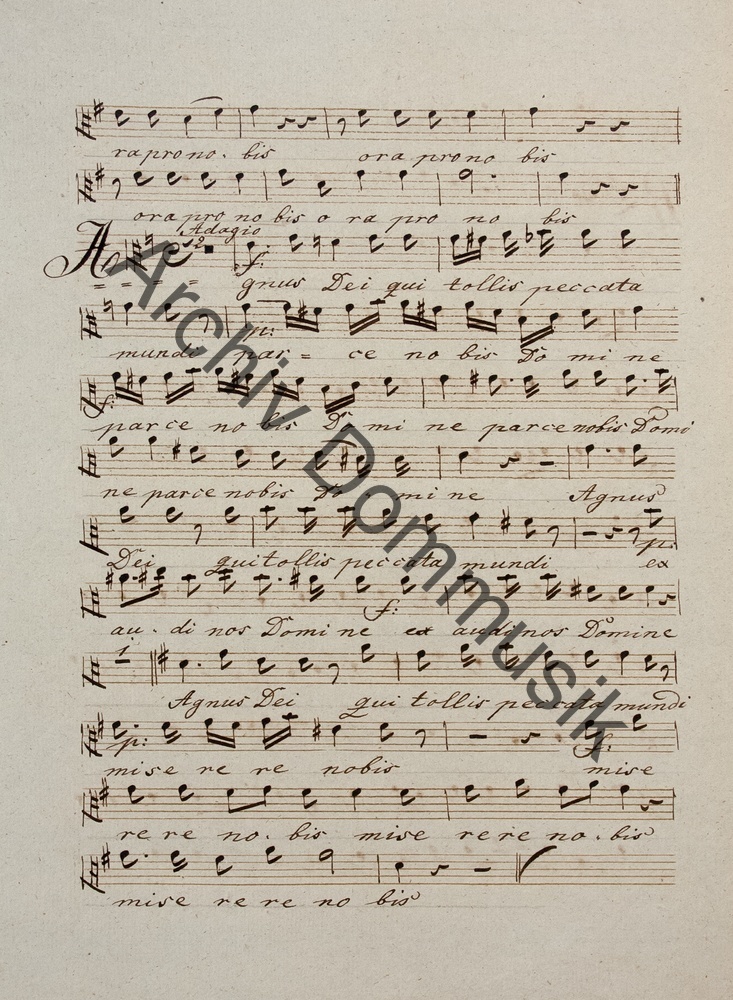 ra pro no. bis ora pro no bis
ora pro no bis o ra pro no bis
Adagio
2
f:
A = = = = gnus Dei qui tollis peccata
p:
mundi par = ce no bis Do mi ne
f:
parce no bis Do mi ne parce nobis Domi
ne parce nobis Do . mi ne Agnus
p:
Dei qui tollis peccata mundi ex
f:
au . di nos Domi ne ex audi nos Domine
1
Agnus Dei qui tollis peccata mundi
p: f:
mise re re nobis mise
re re no . bis mise re re no . bis
mise re re no bis
Archiv Dommusik